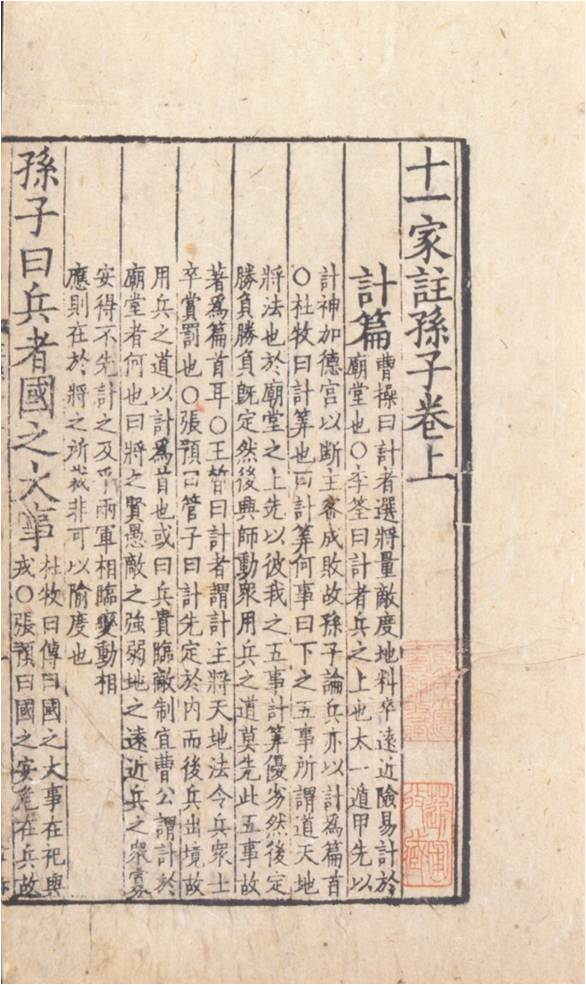 十一家註孫子卷上
計篇
曹操曰計者選將量敵度地料卒遠近險易計於
廟堂也○李筌曰計者兵之上也太一遁甲先以
計神加德宮以斷主客成敗故孫子論兵亦以計爲篇首
○杜牧曰計筭也曰計筭何事曰下之五事所謂道天地
將法也於廟堂之上先以彼我之五事計筭優劣然後定
勝負勝負旣定然後興師動衆用兵之道莫先此五事故
著爲篇首耳○王晳曰計者謂計主將天地法令兵衆士
卒賞罰也○張預曰管子曰計先定於內而後兵出境故
用兵之道以計爲首也或曰兵貴臨敵制宜曹公謂計於
廟堂者何也曰將之賢愚敵之強弱地之遠近兵之衆寡
安得不先計之及乎兩軍相臨變動相
應則在於將之所裁非可以隃度也
孫子曰兵者國之大事
杜牧曰傳曰國之大事在祀與
戎○張預曰國之安危在兵故